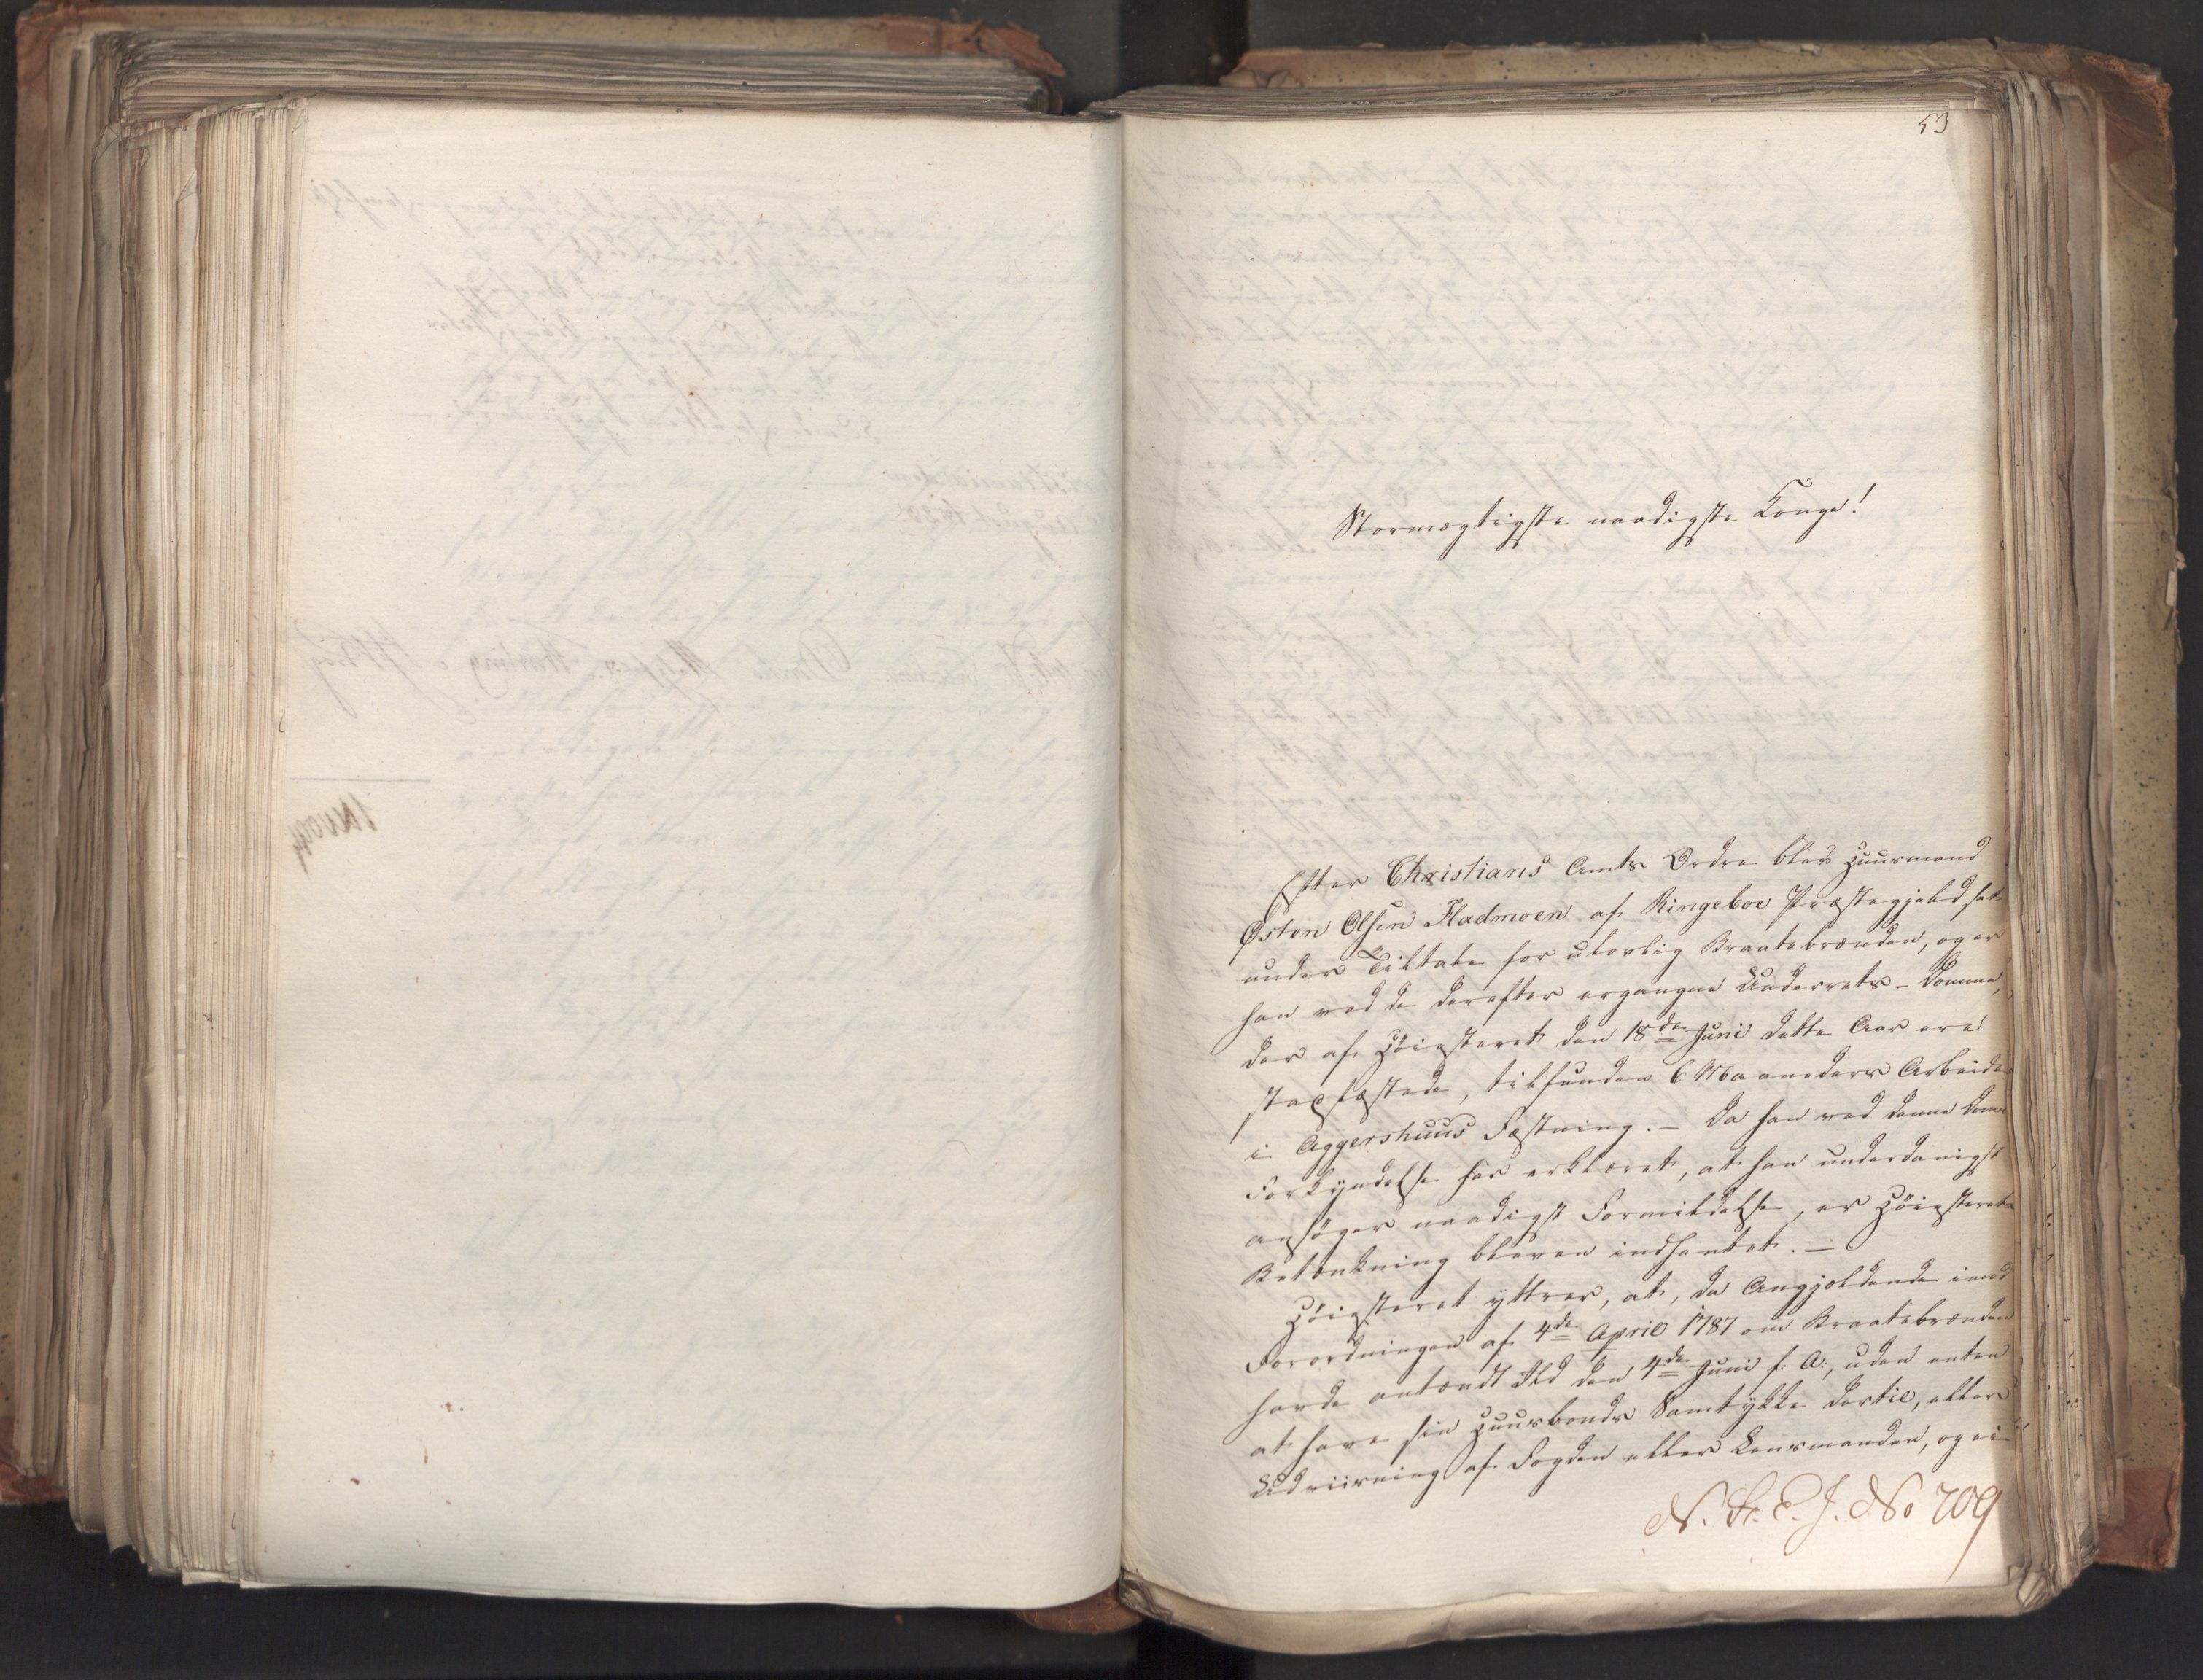 53
Stormægtigste naadigste Konge!
Efter Christians Amts Ordre blev Huusmand
Østen Olsen Fladmoen af Ringeboe Præstegjeld sat
under Tiltale for ulovlig Braatebrænden, og er
han ved de derefter ergangne Underrets-Domme,
der af Høiesteret den 18de Juni dette Aar ere
stadfæstede, tilfunden 6 Maaneders Arbeide
i Aggershuus Fæstning. — Da han ved denne Doms
Forkyndelse har erklæret, at han underdanigst
ansøger naadigst Formildelse, er Høiesterets
Betænkning bleven indhentet. —
Høiesteret yttrer, at, da Angjeldende imod
Forordningen af 4de April 1787 om Braatebrænden
havde antændt Ild den 4de Juni f: A:, uden enten
at have sin Huusbonds Samtykke dertil, eller
Udviisning af Fogden eller Lensmanden, og ei
N. S. E. J. No 709